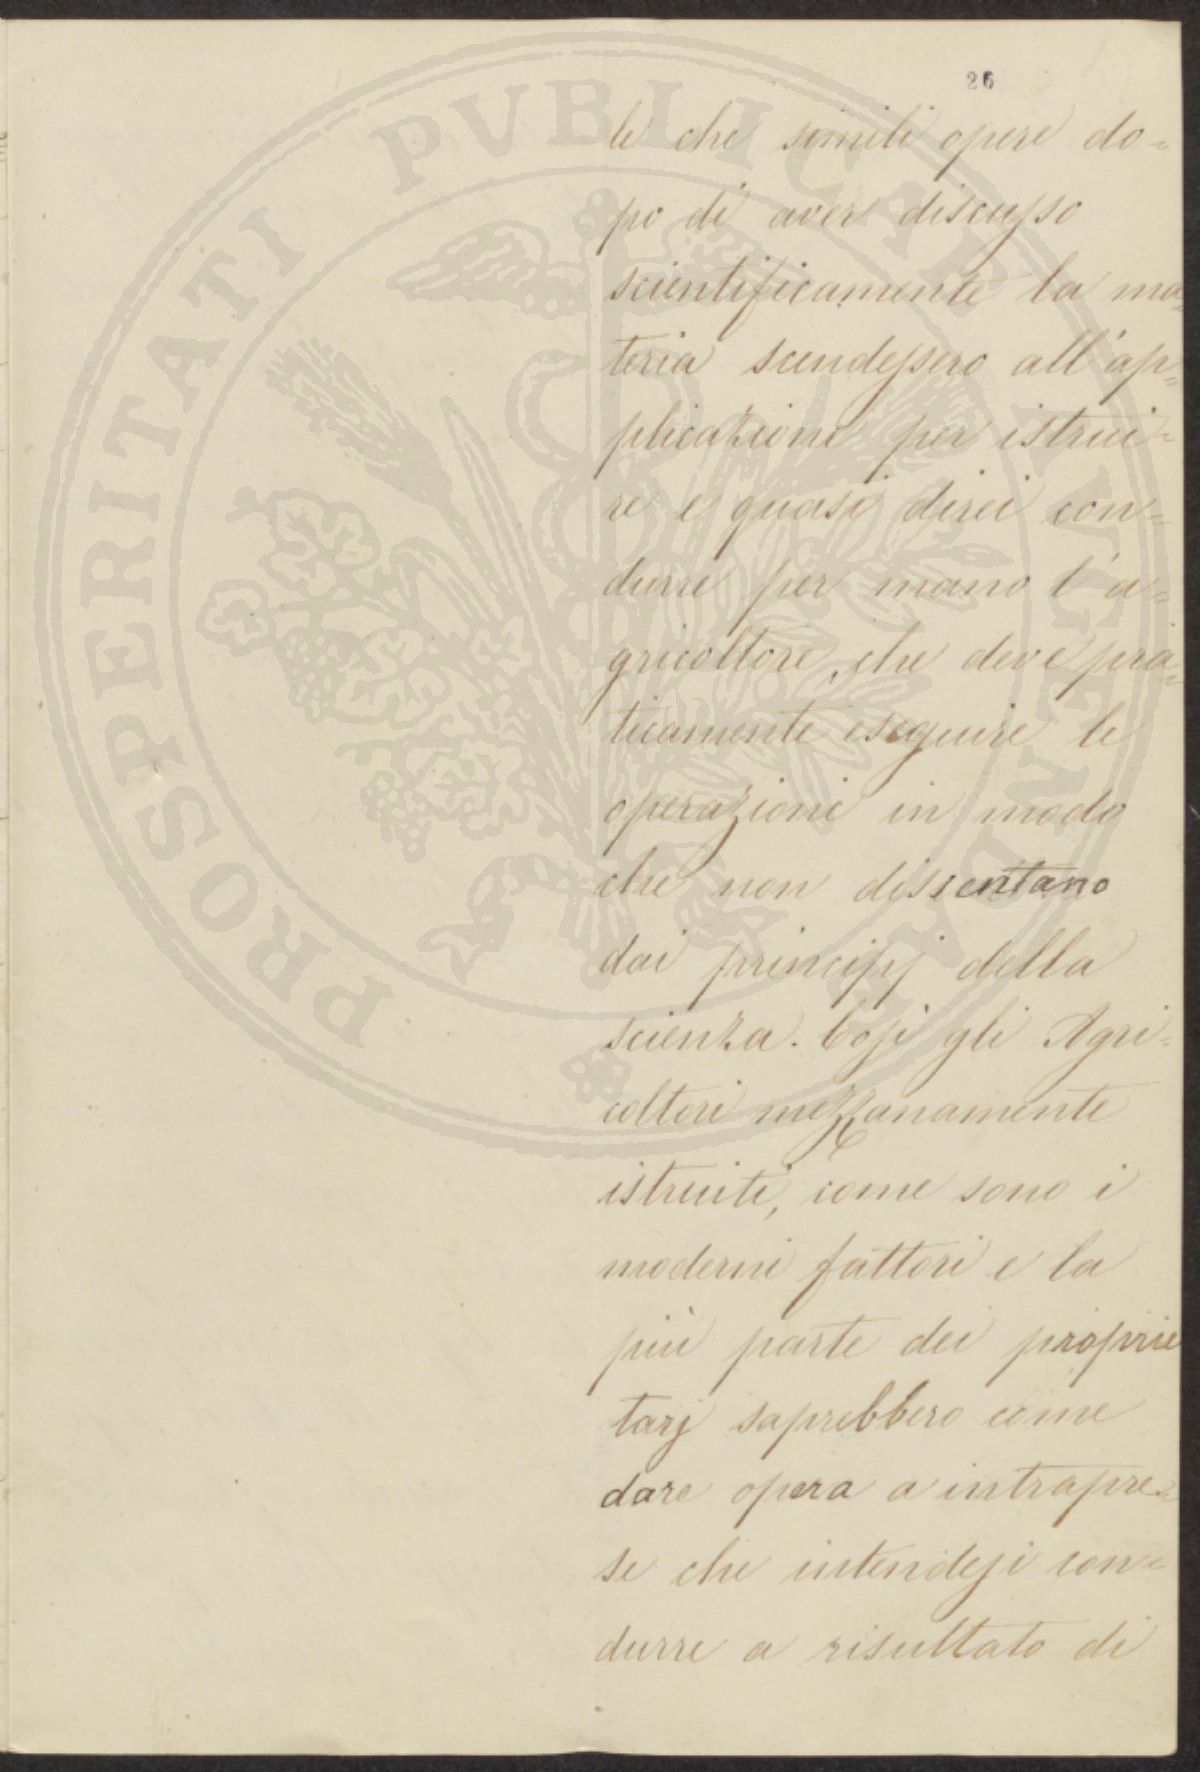 26
le che simili opere do=
po di aver discusso
scientificamente la ma=
teria scendessero all'ap=
plicazione per istrui=
re e quasi direi con=
durre per mano l'a=
gricoltore, che deve pra=
ticamente eseguire le
operazioni in modo
che non dissentano
dai principj della
scienza. Così gli Agri=
coltori mezzanamente
istruiti, come sono i
moderni fattori e la
più parte dei proprie
tarj saprebbero come
dare opera a intrapre=
se che intendesi con=
durre a risultato di
PROSPERITATI PUBLICAE AUGENDAE